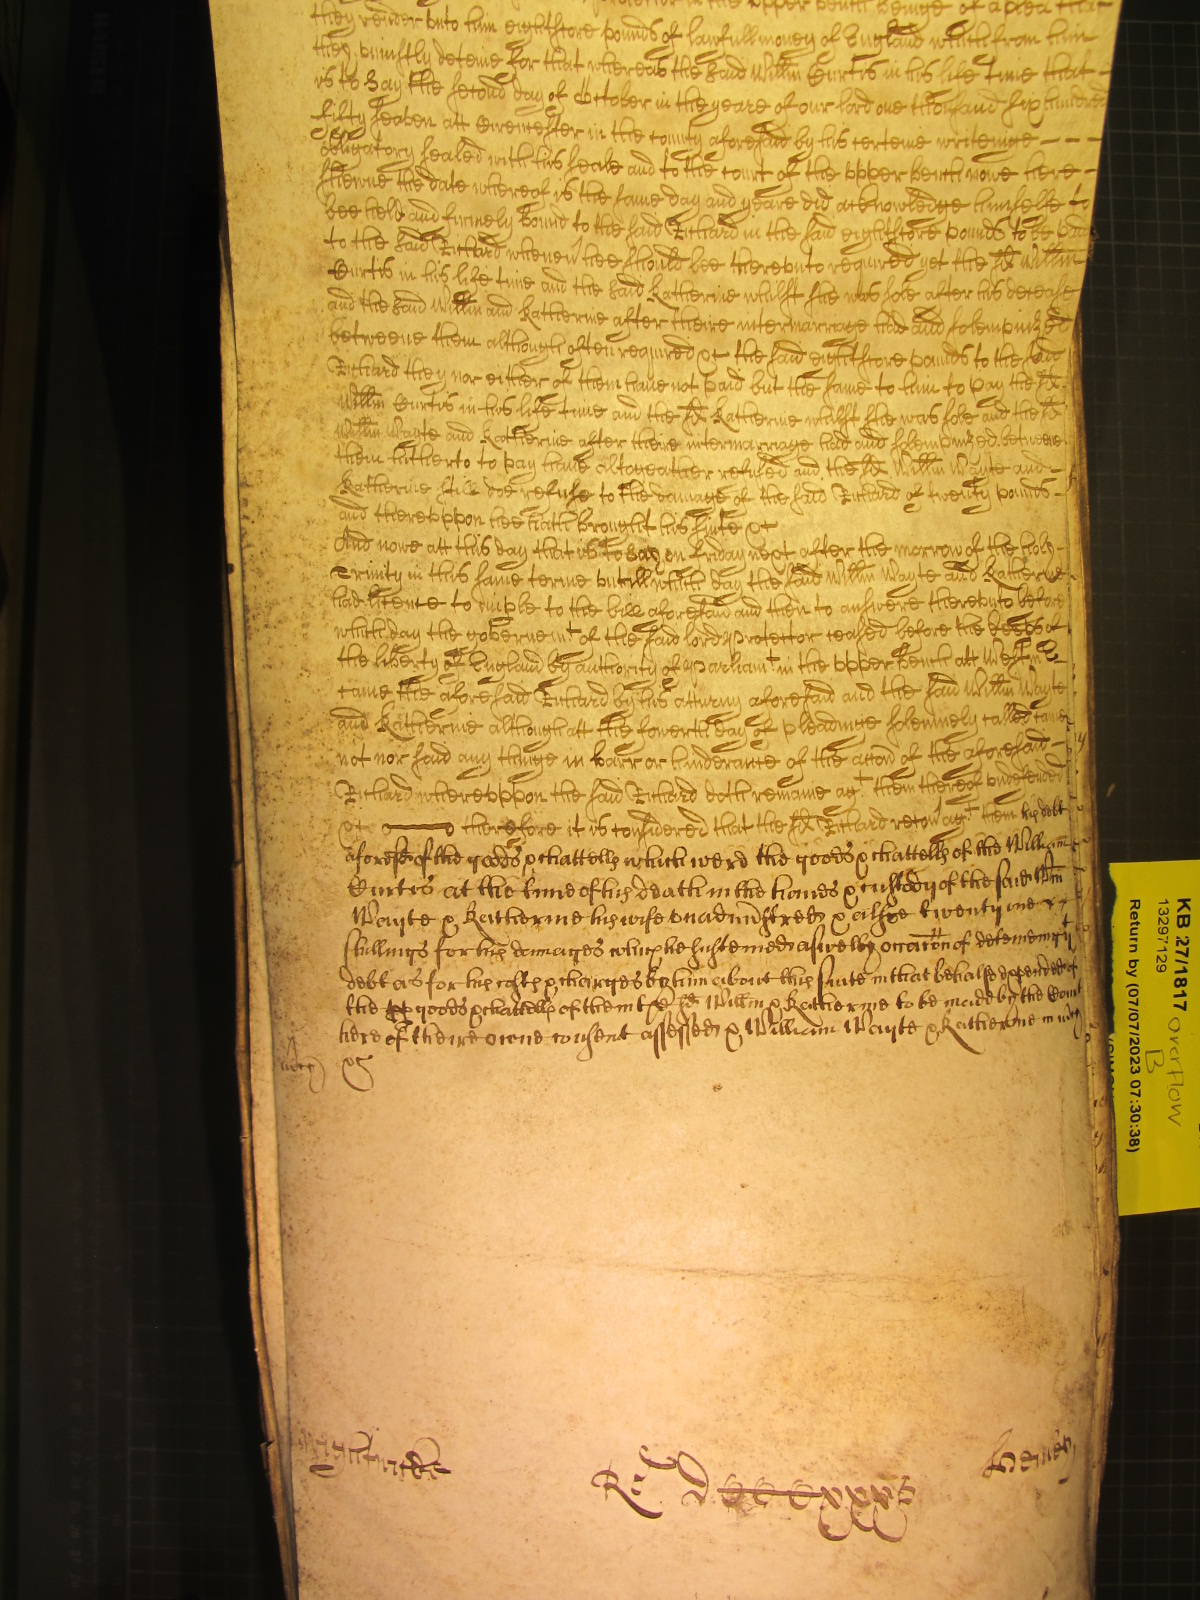 Protector in the upper bench beinge of a plea that
they render unto him eightscore pounds of lawfull money of England which from him
they uniustly deteine for that whereas the said Willm Curtis in his life time that
is to say the second day of October in the yeare of our lord one thousand six hundred
fifty seaven att Cirencester in the county aforesaid by his certeine writeinge
obligatory sealed with his seale and to the court of the upper bench nowe here
shewne the date whereof is the same day and yeare did acknowledge himselfe to
bee held and firmely bound to the said Richard in the said eightscore pounds to be paid
to the said Richard when hee should bee thereunto required yet the sd Willm
Curtis in his life time and the said Katherine whilst she was sole after his decease
and the said Willm and Katherine after theire intermarriage had and solempnized
betweene them although often required &c the said eightscore pounds to the said
Richard they nor either of them have not paid but the same to him to pay the sd
Willm Curtis in his life time and the sd Katherine whilst she was sole and the sd
Willm Wayte and Katherine after there intermarriage had and solempnized betweene
them hitherto to pay have altogeather refused and the sd Willm Wayte and
Katherine still doe refuse to the damage of the said Richard of twenty pounds
and thereuppon hee hath brought his suite &c
And nowe att this day that is to say on friday next after the morrow of the holy
Trinity in this same terme untill which day the said Willm Wayte and Katherine
had licence to imple to the bill aforesaid and then to answere thereunto before
which day the governemt of the said lord Protector ceased before the keeps of
the liberty of England by authority of Parliamt in the upper bench att Westm
came the aforesaid Richard by his atturny aforesaid and the said Willm Wayte
and Katherine although att the fowerth day of pleadinge solemnely called came
not nor said any thinge in barr or hinderance of the accon of the aforesaid
Richard whereuppon the said Richard doth remaine agt them thereof undefended
&c therefore it is considered that the sd Richard recovr agt them his debt
aforesd of the goods & chattells which were the goods & chattells of the William
Curtis at the time of his death in the hands & custody of the said Willm
Wayte & Katherine his wife unadministred & alsoe twenty one
shillings for his damages which he susteined aswell by occacon of deteineing
debt as for his costs & charges by him about his suite in that behalfe expended of
the goods & chattells of the sd Willm & Katherine to be made by the Court
here of theire owne consent assessed & William Wayte & Katherine in mcy
&c
mercy
Wightwicke
Ro DCCCCxxxv
Henley
KB 27/1817
13297129
overflow
B
Return by (07/07/2023 07:30:38)